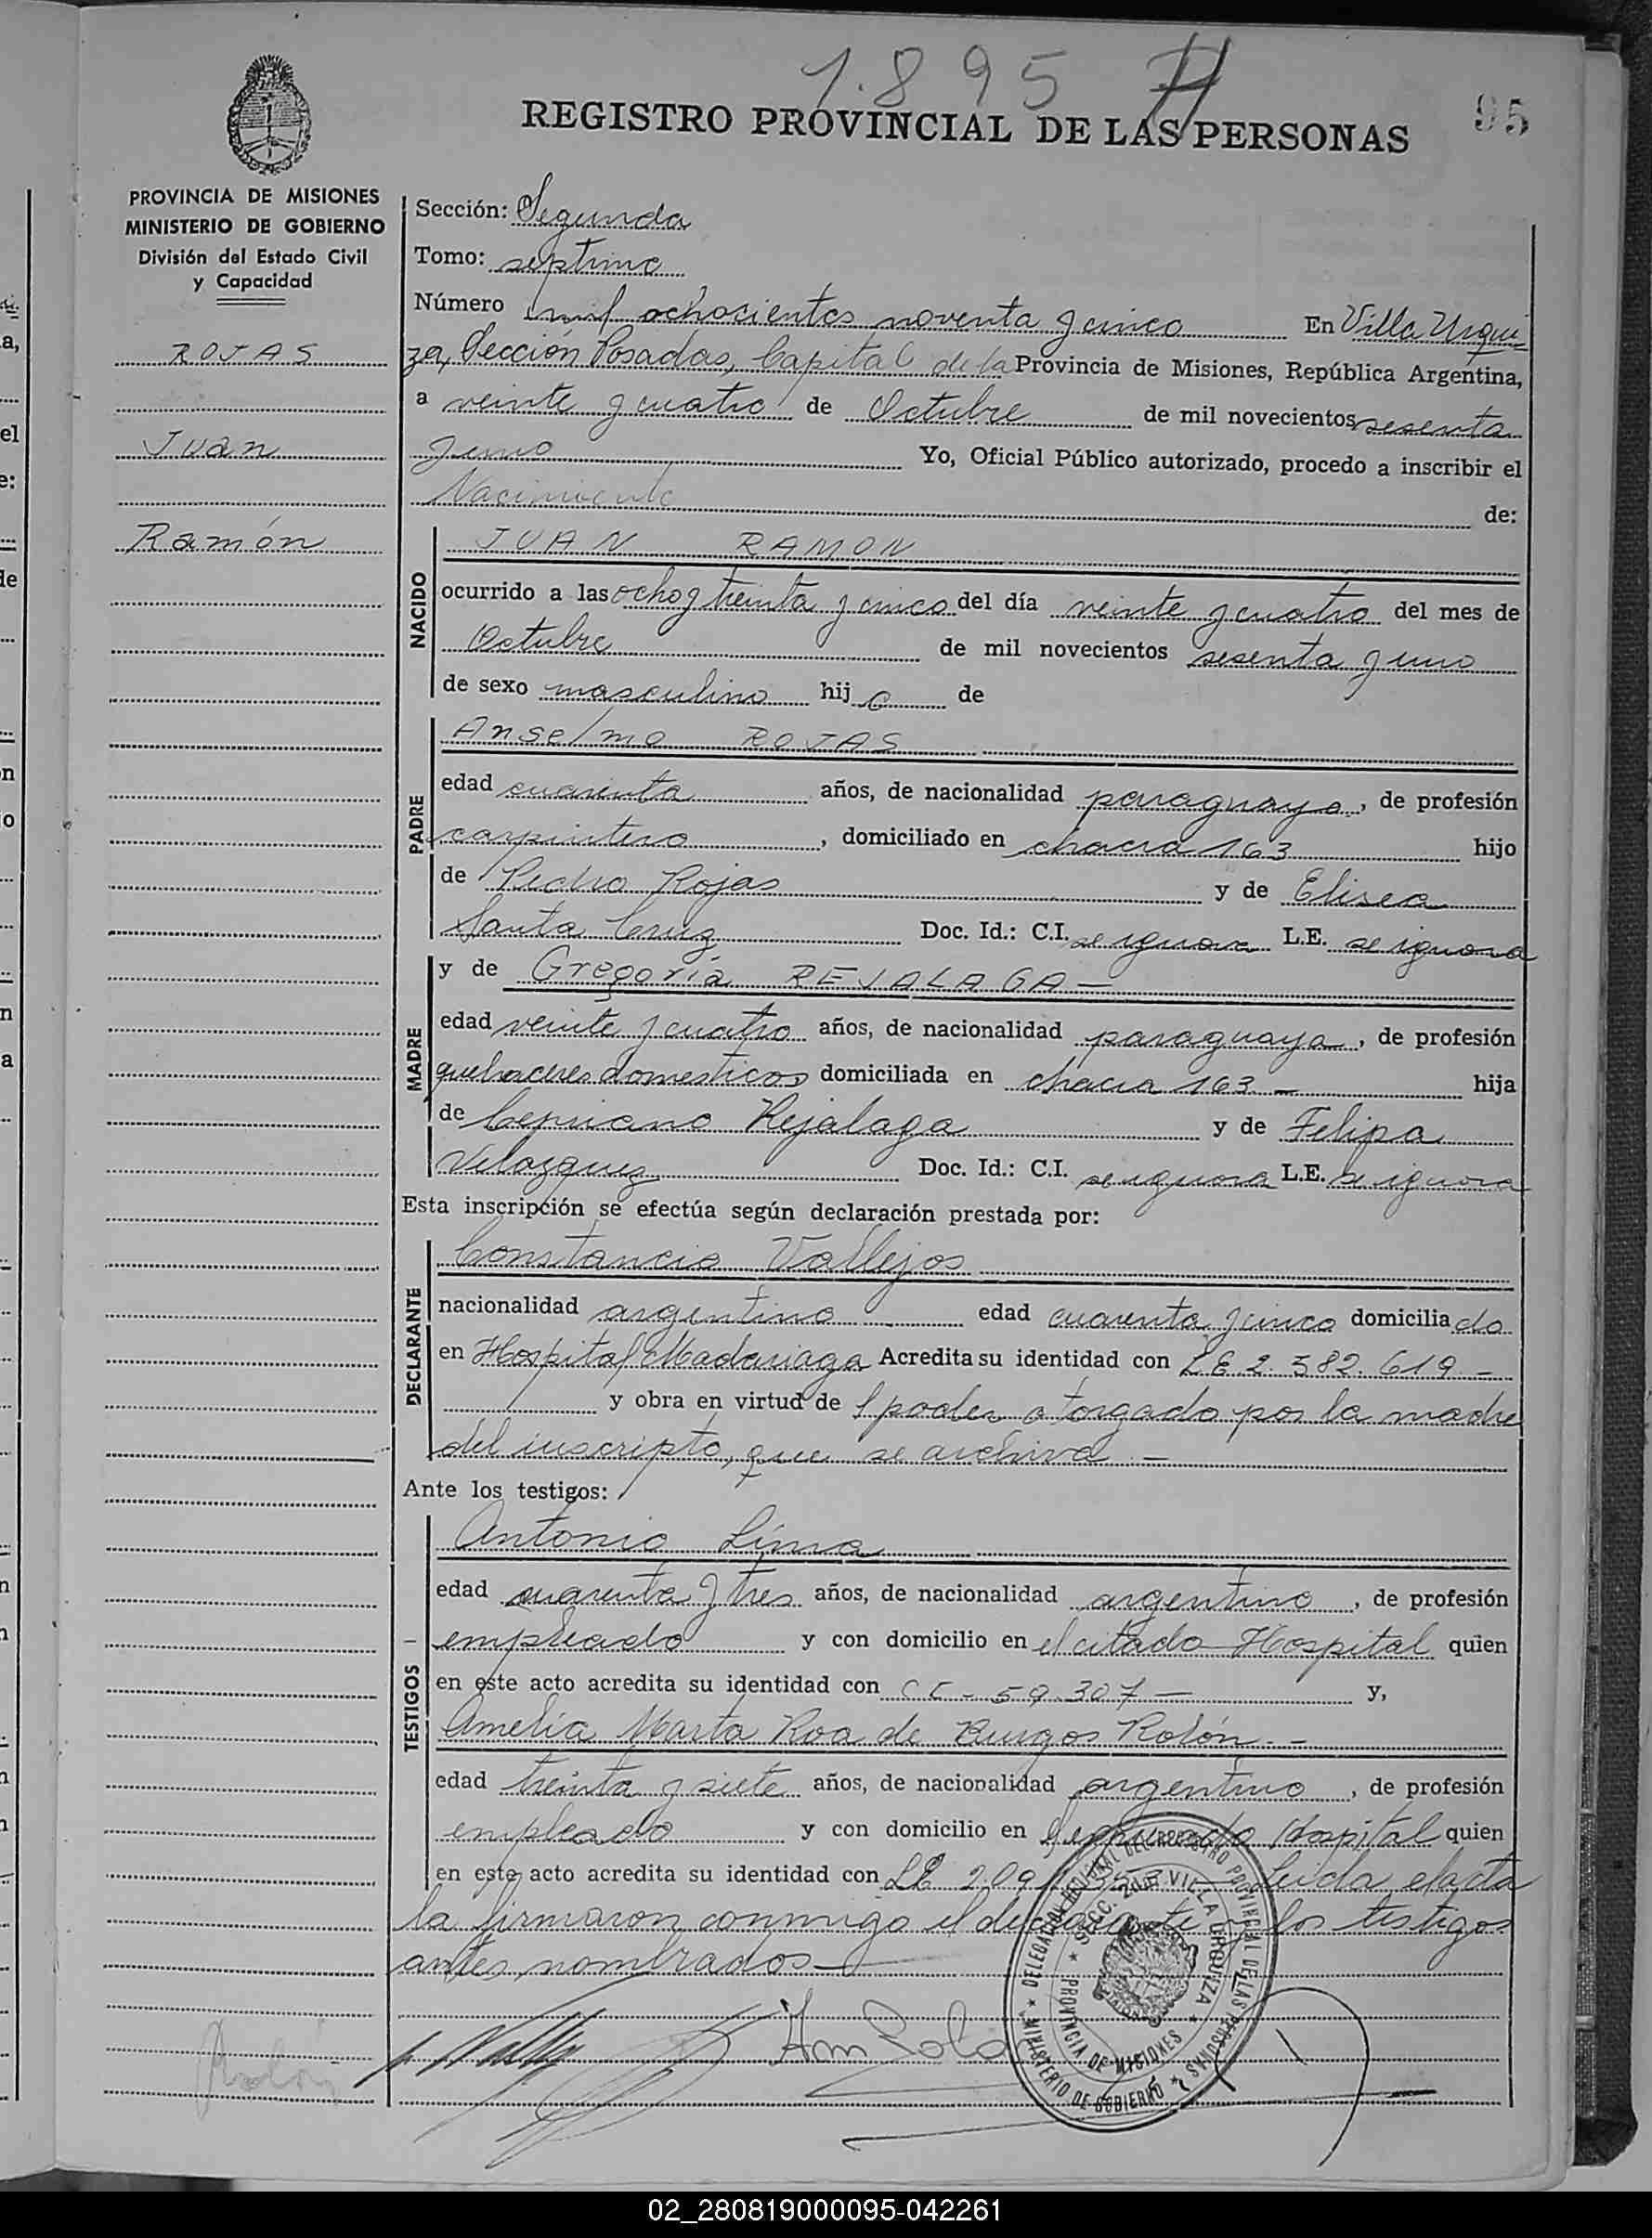 1.895
REGISTRO PROVINCIAL DE LAS PERSONAS
95
PROVINCIA DE MISIONES
MINISTERIO DE GOBIERNO
División del Estado Civil
y Capacidad
ROJAS
Juan
Ramón
Sección: Segunda
Tomo: septimo
Número mil ochocientos noventa y cinco En Villa Urqui-
za, Sección Posadas, Capital de la Provincia de Misiones, República Argentina,
a veinte y cuatro de Octubre de mil novecientos sesenta
y uno Yo, Oficial Público autorizado, procedo a inscribir el
Nacimiento de:
NACIDO
JUAN RAMON
ocurrido a las ocho y treinta y cinco del día veinte y cuatro del mes de
Octubre de mil novecientos sesenta y uno
de sexo masculino hijo de
PADRE
Anselmo ROJAS
edad cuarenta años, de nacionalidad paraguaya, de profesión
carpintero, domiciliado en chacra 163 hijo
de Pedro Rojas y de Elisea
Santa Cruz Doc. Id.: C.I. se ignora L.E. se ignora
MADRE
y de Gregoria REJALAGA -
edad veinte y cuatro años, de nacionalidad paraguaya, de profesión
quehaceres domesticos domiciliada en chacra 163 - hija
de Cepriano Rejalaga y de Felipa
Velazquez Doc. Id.: C.I. se ignora L.E. se ignora
Esta inscripción se efectúa según declaración prestada por:
DECLARANTE
Constancio Vallejos
nacionalidad argentino edad cuarenta y cinco domiciliado
en Hospital Madariaga Acredita su identidad con LE 2.582.619 -
y obra en virtud de poder otorgado por la madre
del inscripto, que se archiva -
Ante los testigos:
TESTIGOS
Antonio Lima
edad cuarenta y tres años, de nacionalidad argentino, de profesión
empleado y con domicilio en el citado Hospital quien
en este acto acredita su identidad con 59.307 - y,
Amelia Marta Roa de Burgos Rolón -
edad treinta y siete años, de nacionalidad argentino, de profesión
empleado y con domicilio en Hospital quien
en este acto acredita su identidad con LE Leida el acta
la firmaron conmigo el declarante y los testigos
antes nombrados -
DELEGACION REGIONAL DEL REGISTRO PROVINCIAL DE LAS PERSONAS
MINISTERIO DE GOBIERNO
SECC. 2da. VILLA URQUIZA
PROVINCIA DE MISIONES
Rolón
02_280819000095-042261